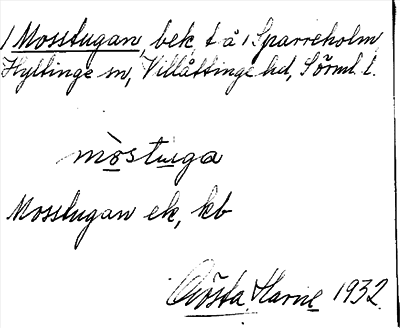 1 Mosstugan, bek, t å 1 Sparreholm
Hyltinge sn, Villåttinge hd, Sörml. l.
mòstuga
Mosstugan ek, kb
Gösta Harne 1932.